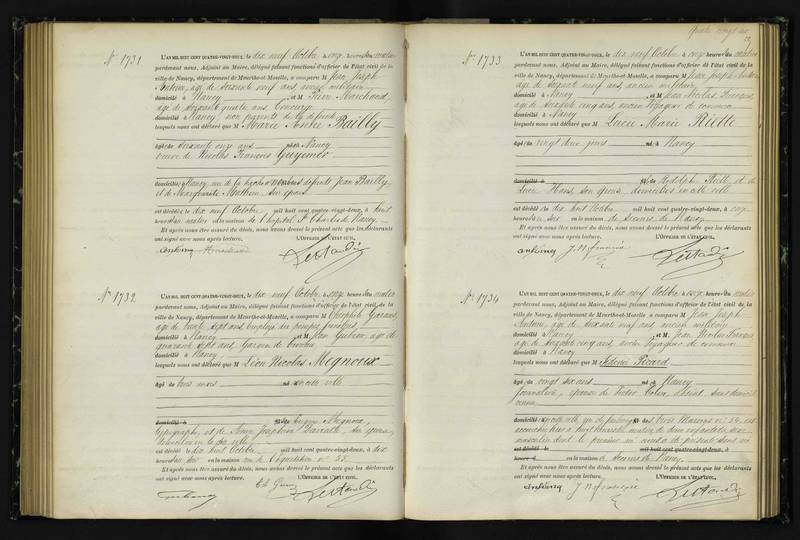 N° 1731
L'AN MIL HUIT CENT QUATRE-VINGT-DEUX, le dix neuf Octobre, à onze heures du matin
pardevant nous, Adjoint au Maire, délégué faisant fonctions d'officier de l'état civil de la
ville de Nancy, département de Meurthe-et-Moselle, a comparu M Jean Joseph
Antoine, âgé de soixante neuf ans, ancien militaire,
domicilié à Nancy, et M Pierre Marchand,
âgé de soixante quatre ans, Concierge,
domicilié à Nancy, non parents de la défunte
lesquels nous ont déclaré que M Marie Anne Bailly
âgé de soixante onze ans né à Nancy
veuve de Nicolas François Guyemer
domiciliée à Nancy, rue de la hache n° fille des défunts Jean Bailly
et de Marguerite Mathieu, son épouse
est décédé le dix neuf Octobre, mil huit cent quatre-vingt-deux, à huit
heures du matin en la maison de l'hôpital St Charles de Nancy
Et après nous être assuré du décès, nous avons dressé le présent acte que les déclarants
ont signé avec nous après lecture. L'OFFICIER DE L'ÉTAT CIVIL,
N° 1732
L'AN MIL HUIT CENT QUATRE-VINGT-DEUX, le dix neuf Octobre, à onze heures du matin
pardevant nous, Adjoint au Maire, délégué faisant fonctions d'officier de l'état civil de la
ville de Nancy, département de Meurthe-et-Moselle, a comparu M Théophile
âgé de trente sept ans, Employé des pompes funèbres,
domicilié à Nancy, et M Jean âgé de
quarante sept ans, Garçon de bureau
domicilié à Nancy,
lesquels nous ont déclaré que M Léon Nicolas Mignoux
âgé de trois mois né en cette ville
domicilié à fils de Eugène Mignoux,
typographe, et de Anne Joséphine son épouse,
domiciliés en cette ville
est décédé le dix huit Octobre mil huit cent quatre-vingt-deux, à dix
heures du soir en la maison rue de l'Equitation n° 35
Et après nous être assuré du décès, nous avons dressé le présent acte que les déclarants
ont signé avec nous après lecture. L'OFFICIER DE L'ÉTAT CIVIL,
Quatre vingt
N° 1733
L'AN MIL HUIT CENT QUATRE-VINGT-DEUX, le dix neuf Octobre à onze heures du matin
pardevant nous, Adjoint au Maire, délégué faisant fonctions d'officier de l'état civil de la
ville de Nancy, département de Meurthe-et-Moselle, a comparu M Jean Joseph Antoine
âgé de soixante neuf ans, ancien militaire,
domicilié à Nancy, et M Jean Nicolas François,
âgé de soixante cinq ans, ancien voyageur de commerce
domicilié à Nancy
lesquels nous ont déclaré que M Lucie Marie Rielle
âgé de vingt deux jours né à Nancy
domicilié à fille de Rodolphe Rielle et de
Hans, son épouse, domiciliés en cette ville
est décédé le dix huit Octobre, mil huit cent quatre-vingt-deux, à onze
heures du soir en la maison de secours de Nancy
Et après nous être assuré du décès, nous avons dressé le présent acte que les déclarants
ont signé avec nous après lecture. L'OFFICIER DE L'ÉTAT CIVIL,
J. N. françois
N° 1734
L'AN MIL HUIT CENT QUATRE-VINGT-DEUX, le dix neuf Octobre, à onze heures du matin
pardevant nous, Adjoint au Maire, délégué faisant fonctions d'officier de l'état civil de la
ville de Nancy, département de Meurthe-et-Moselle, a comparu M Jean Joseph
Antoine, âgé de soixante neuf ans, ancien militaire
domicilié à Nancy et M Jean Nicolas François,
âgé de soixante cinq ans, ancien voyageur de commerce
domicilié à Nancy
lesquels nous ont déclaré que M Picard
âgé de vingt six ans né à Nancy
Journalière, épouse de Victor sans domicile
connu
domicilié à en cette ville, rue du faubourg des trois Maisons n° 54, est
accouchée à huit heures du matin de deux enfants du sexe
masculin dont le premier né nous a été présenté sans vie
est décédé le mil huit cent quatre-vingt-deux, à
heures d en la maison de secours de Nancy
Et après nous être assuré du décès, nous avons dressé le présent acte que les déclarants
ont signé avec nous après lecture. L'OFFICIER DE L'ÉTAT CIVIL,
J. N. françois